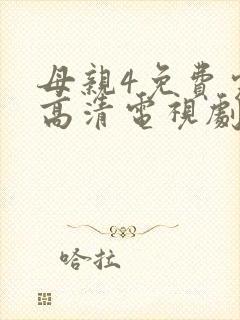 母親4免費
高清電視劇
哈拉